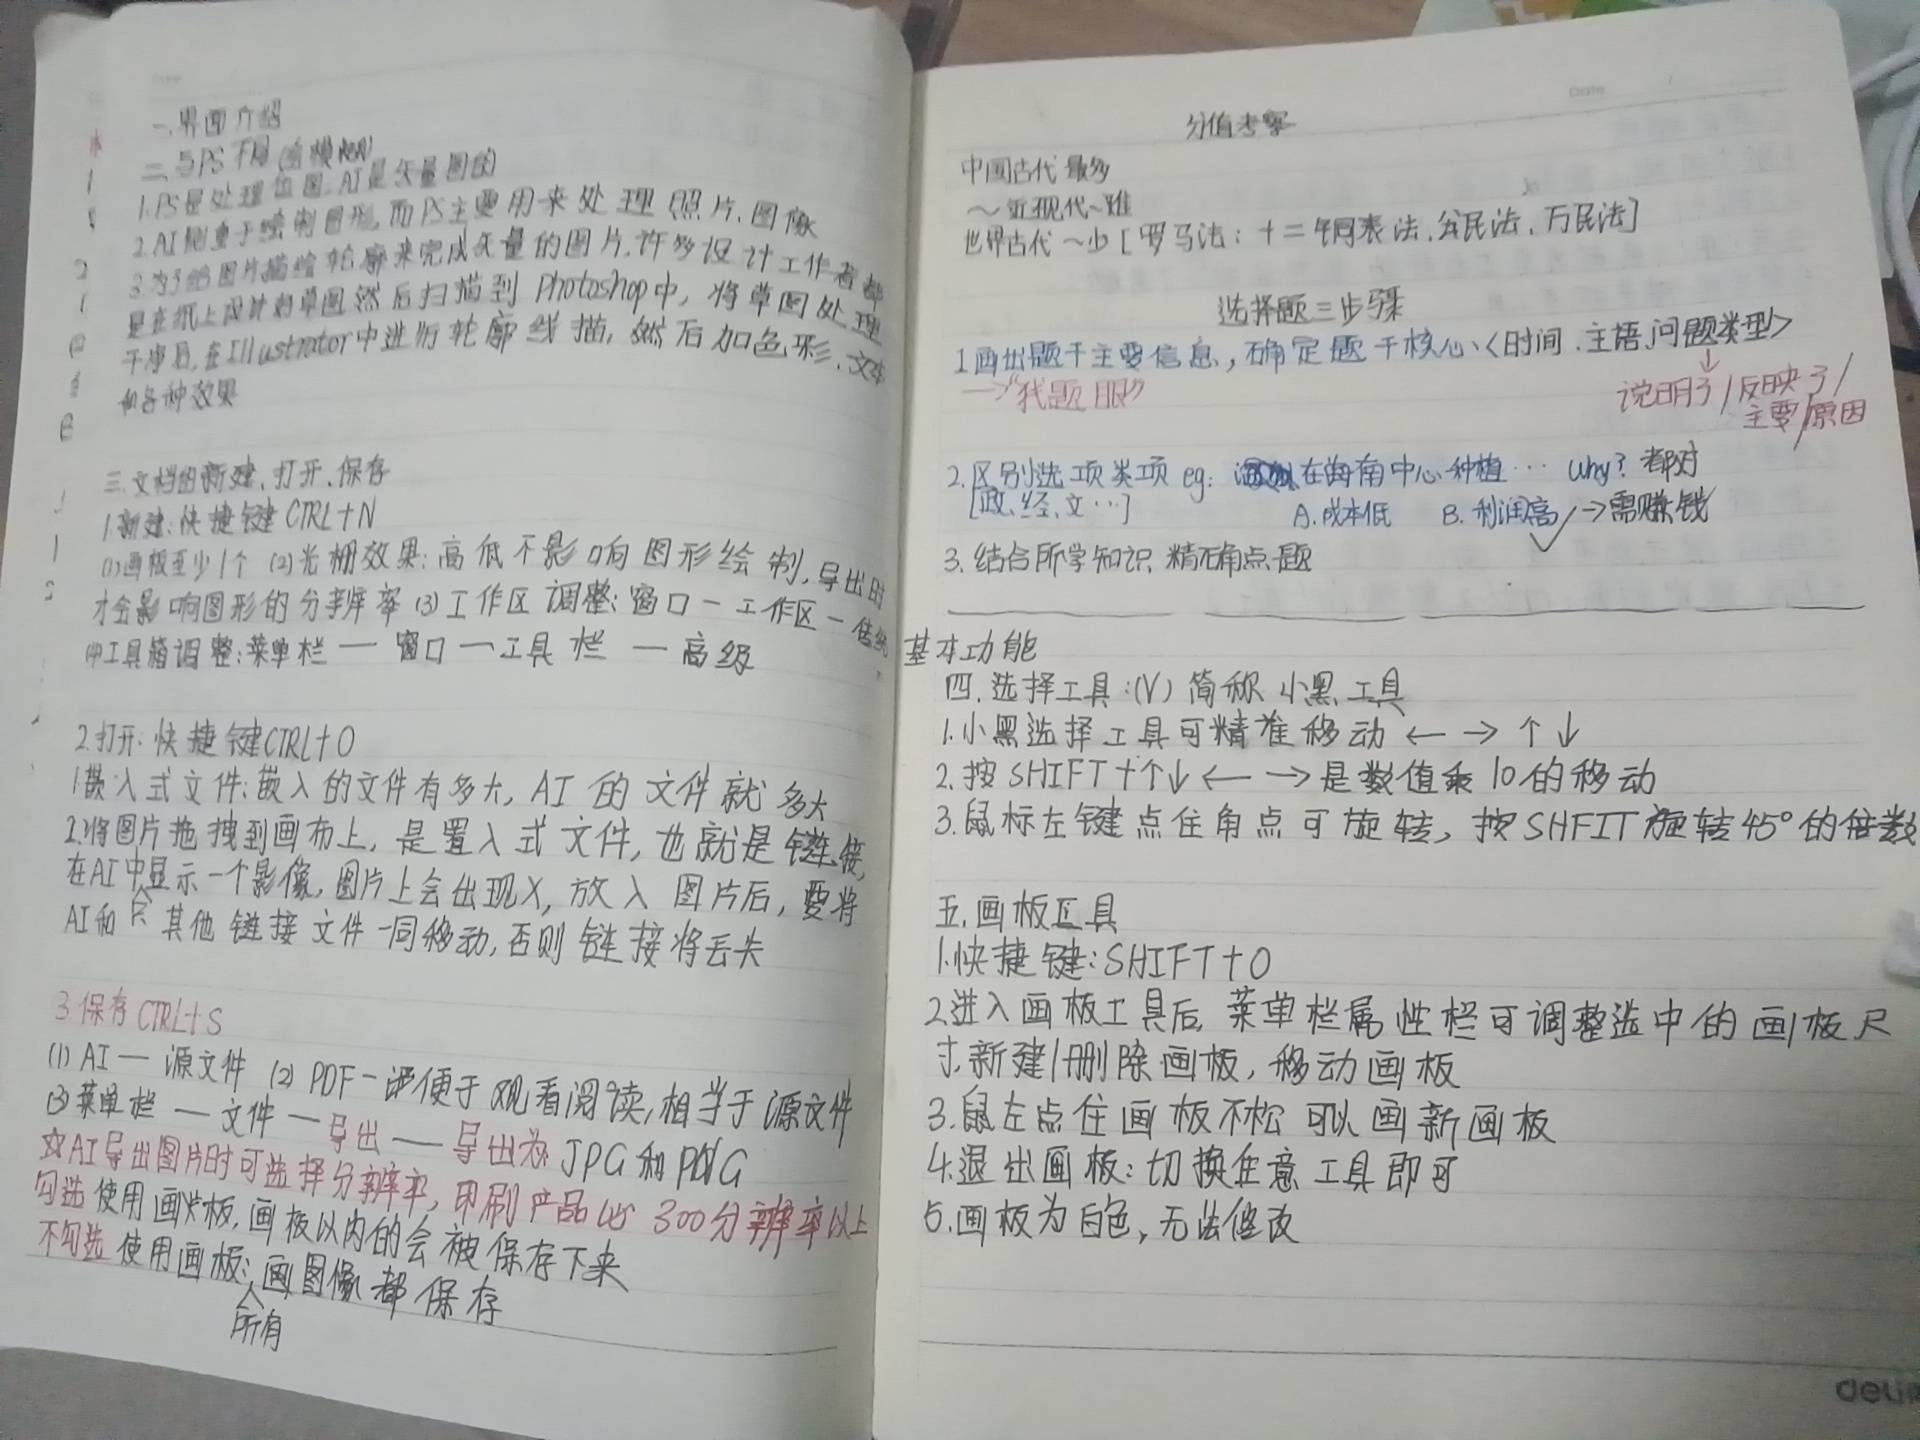 一.界面介绍
二.与PS不同
1.PS是处理位图.AI是矢量图的
2.AI侧重于绘制图形,而PS主要用来处理照片.图像
3.为了给图片描绘轮廓来完成矢量的图片.许多设计工作者都
是在纸上设计好草图然后扫描到Photoshop中,将草图处理
干净后,在Illustrator中进行轮廓线描,然后加色彩.文本
和各种效果
三.文档的新建、打开、保存
1.新建:快捷键CTRL+N
(1)画板至少1个 (2)光栅效果:高低不影响图形绘制,导出时
才会影响图形的分辨率 (3)工作区调整:窗口—工作区—传统
(4)工具箱调整:菜单栏—窗口—工具栏—高级
2.打开:快捷键CTRL+O
1.嵌入式文件:嵌入的文件有多大,AI的文件就多大
2.将图片拖拽到画布上,是置入式文件,也就是链接,
在AI中只显示一个影像,图片上会出现X,放入图片后,要将
AI和其他链接文件一同移动,否则链接将丢失
3.保存CTRL+S
(1)AI—源文件 (2)PDF—便于观看阅读,相当于源文件
(3)菜单栏—文件—导出—导出为JPG和PNG
☆AI导出图片时可选择分辨率,印刷产品必300分辨率以上
勾选使用画板,画板以内的会被保存下来
不勾选使用画板:所有图像都保存
Date
分值考察
中国古代最多
~近现代~难
世界古代~少[罗马法:十二铜表法.公民法.万民法]
选择题三步骤
1画出题干主要信息,确定题干核心<时间.主语.问题类型>
→"找题眼"
↓
说明了/反映了/
主要/原因
2.区别选项类项 eg: 在海南中心种植… why?都对
[政、经、文…] A.成本低 B.利润高✓→需赚钱
3.结合所学知识 精确点题
基本功能
四.选择工具:(V)简称小黑工具
1.小黑选择工具可精准移动←→↑↓
2.按SHIFT+↑↓←→是数值乘10的移动
3.鼠标左键点住角点可旋转,按SHFIT旋转45°的倍数
五.画板工具
1.快捷键:SHIFT+O
2.进入画板工具后,菜单栏属性栏可调整选中的画板尺
寸,新建/删除画板,移动画板
3.鼠左点住画板不松可以画新画板
4.退出画板:切换任意工具即可
5.画板为白色,无法修改
deli